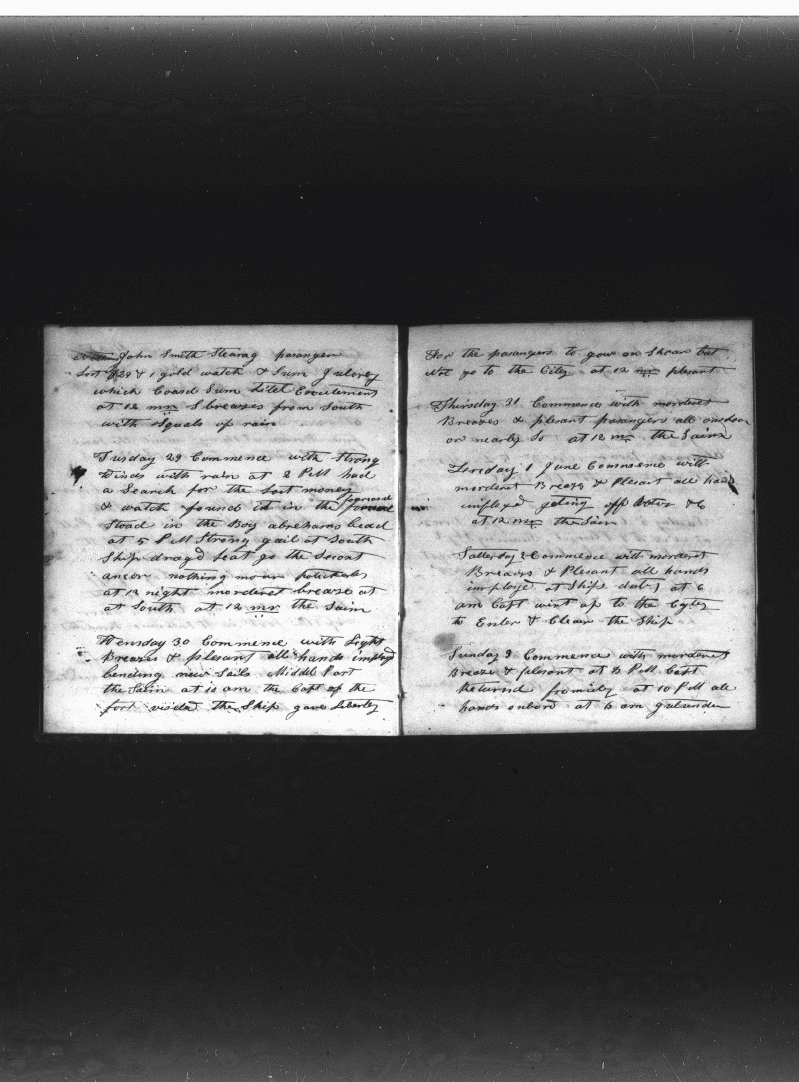 John Smith Stearag pasanger
Lost $28 & 1 gild watch & Sum Julerey
which Coasd Sum litel Excitement
at 12 mr S breazes from South
with squals of rain
Tusday 29 Commence with Strong
Winds with rain at 2 PM had
a Search for the Lost money
& watch found it in the forward
Stoad in the Boy abrehams bead
at 5 PM Strong gail at South
Ship dragd leat go the Secont
ancor nothing moar
at 12 night morderet breaze at
at South at 12 mr the Saim
Wensday 30 Commence with Light
Breazes & plesant all hands imployd
bending new Sails Middel Part
the Saim at 10 am the Capt of the
fort visited the Ship gave Liberty
For the pasangers to gow on Shear but
Not go to the City at 12 mr plesant
Thirsday 31 Commence with morderet
Breazes & plesant pasangers all onshoar
or nearly So at 12 mr the Saim
1 June Commence with
morderet Breaze & Plesant all hands
imployd geting off Water &c
at 12 mr the Saim
Satterday 2 Commence with morderet
Breazes & Plesant all hands
imployd at Ships duty at 6
am Capt wint up to the Cytey
to Enter & Clear the Ship
Sunday 3 Commence with morderet
Breaze & plesant at 8 PM Capt
Returnd from city at 10 PM all
hands onbord at 6 am